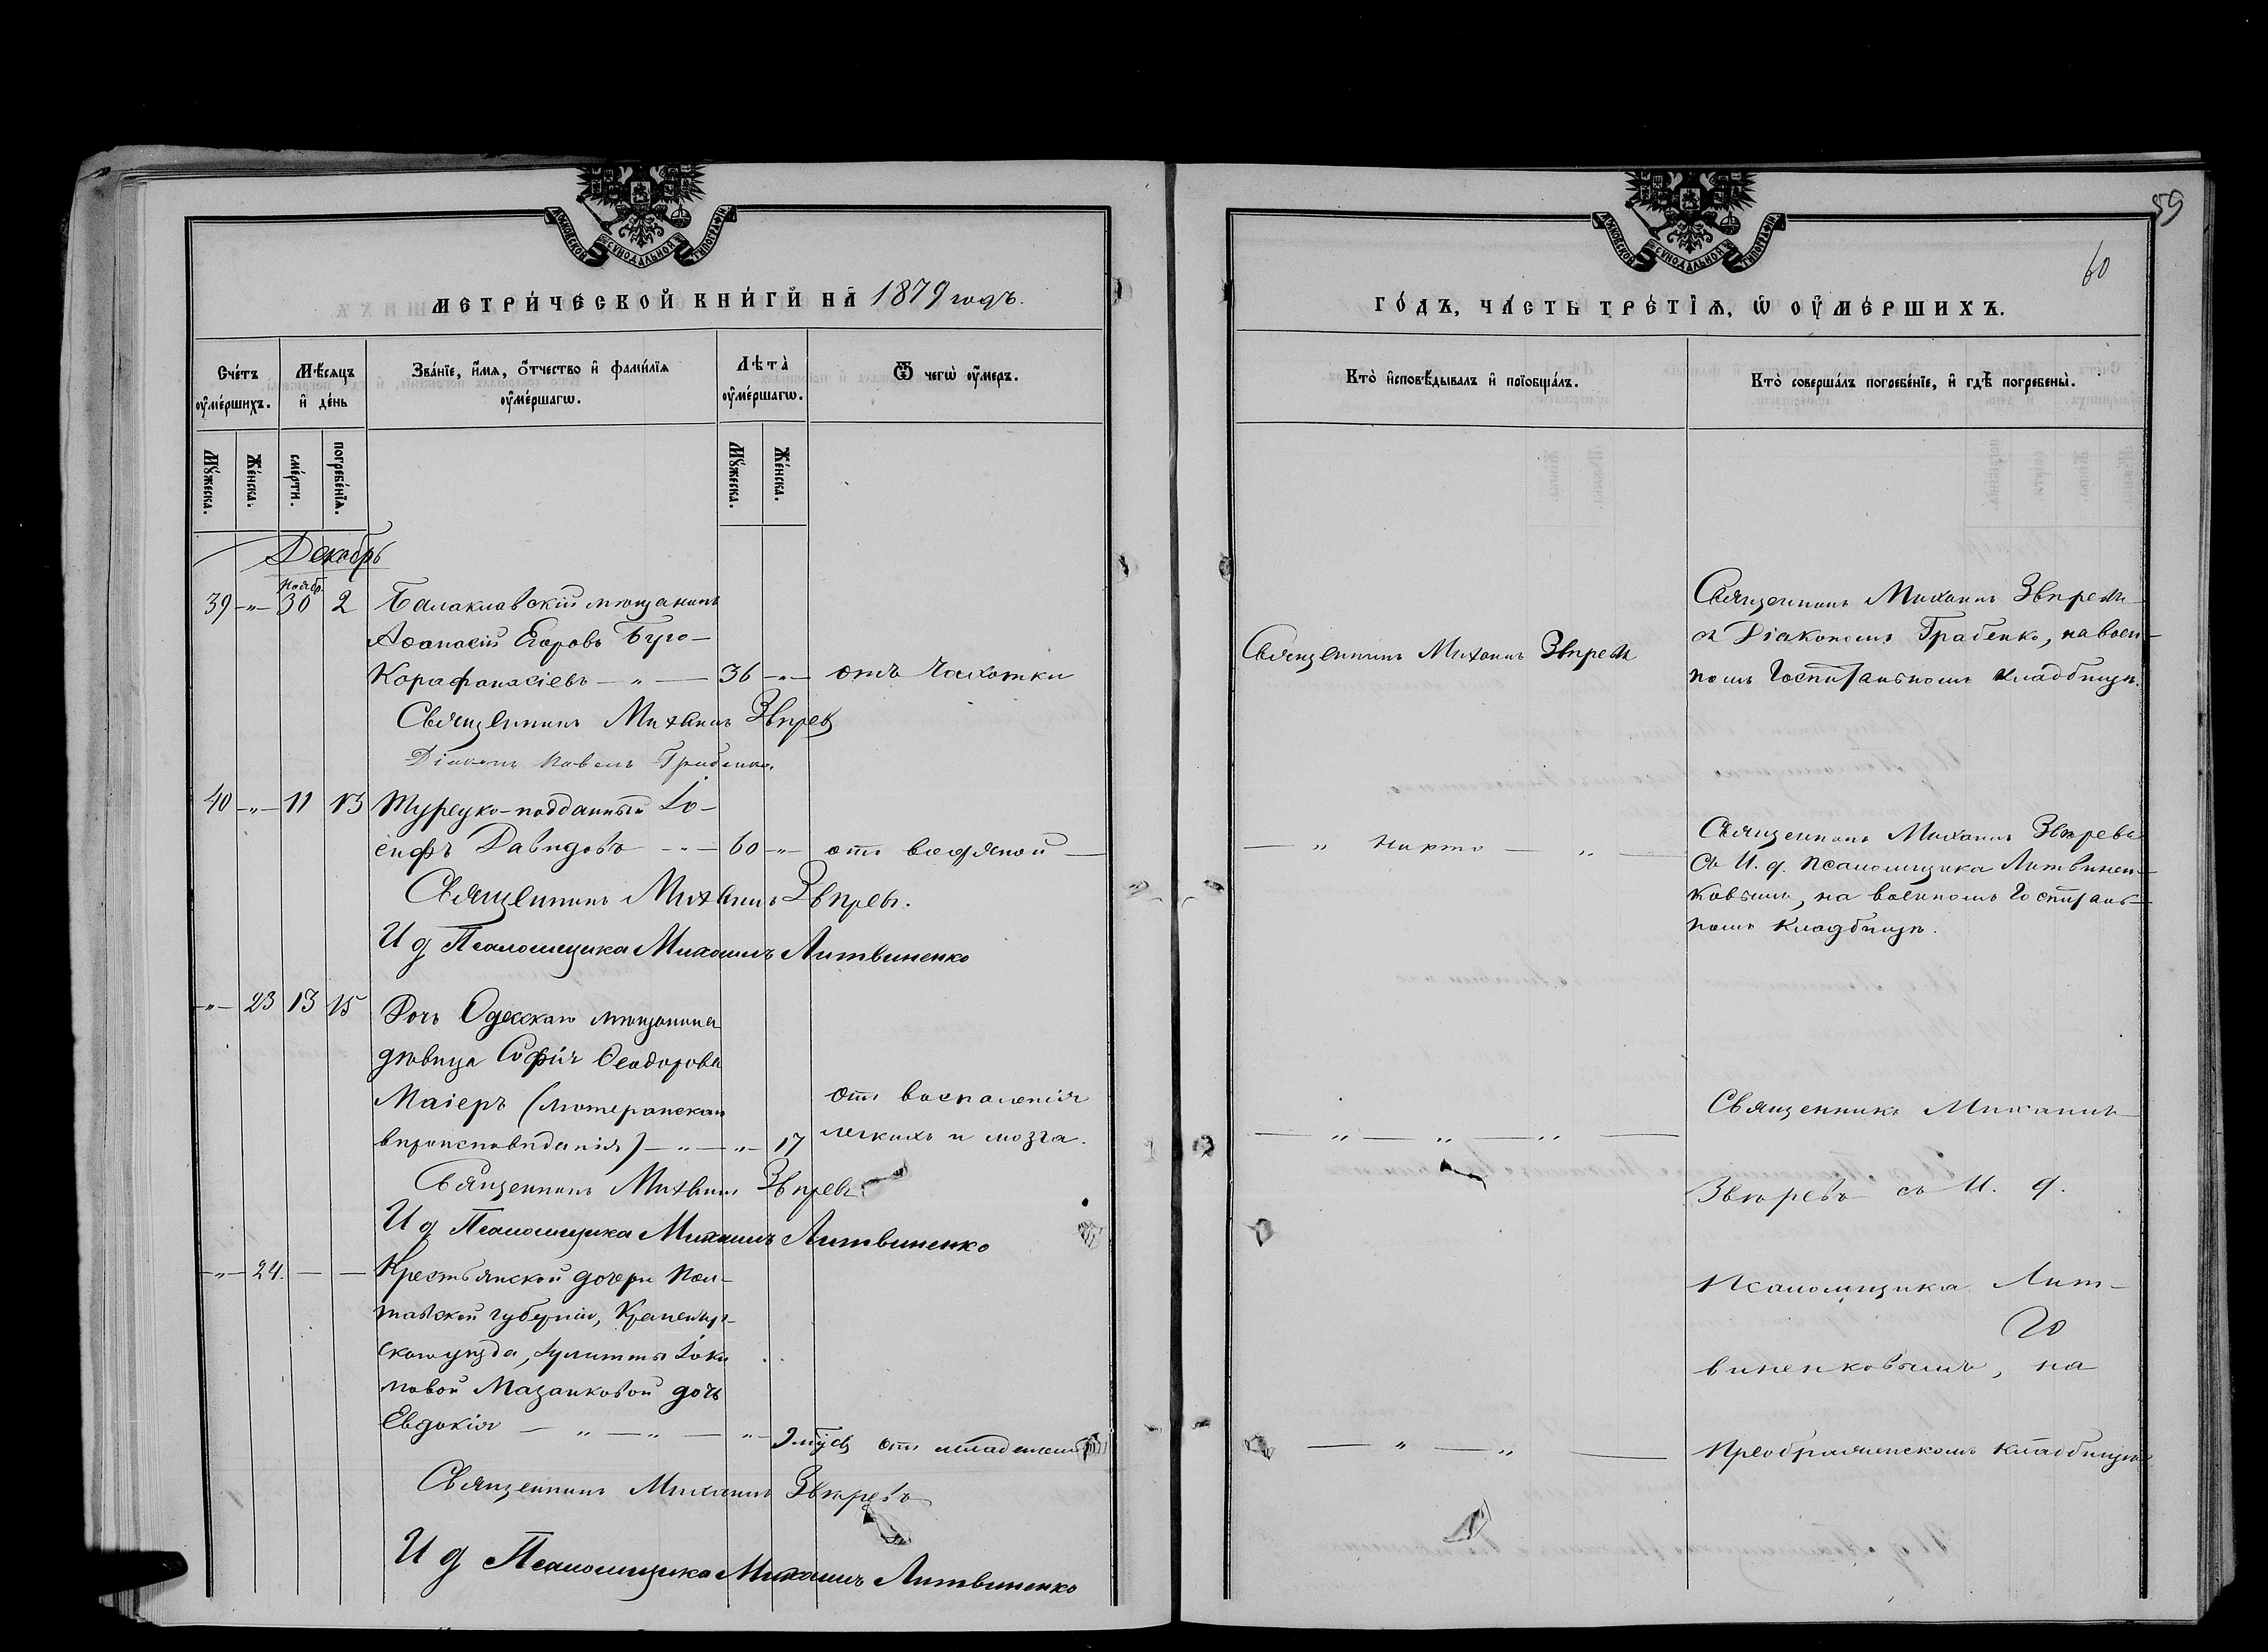 МОСКОВСКОЙ СѴНОДАЛЬНОЙ ТИПОГРАФІИ
МЕТРИ́ЧЕСКОЙ КНИ́ГИ НА 1879 годъ.
Сче́тъ оумéршихъ.
Мѣ́сяцъ и де́нь
Зва́нїе, и́мя, о́тчество и фами́лїя оуме́ршагѡ.
Лѣта̀ оуме́ршагѡ.
Ѿ чегѡ̀ оу́меръ.
Му́жеска.
Же́нска.
сме́рти.
погребе́нїя.
Му́жеска.
Же́нска.
Декабрь
Ноябр.
39 — „ — 30 2 Балаклавскій мѣщанинъ
Аѳанасій Егоровъ Буго-
Карафанасіевъ — „ — 36 — „ — отъ Чахотки
Священникъ Михаилъ Звѣревъ
Діаконъ Павелъ Грабенко.
40 — „ — 11 13 Турецко-подданный Іо-
сифъ Давидовъ — „ — 60 — „ — отъ водяной —
Священникъ Михаилъ Звѣревъ.
И д Псаломщика Михаилъ Литвиненко
— „ — 23 13 15 Дочь Одесскаго мѣщанина
дѣвица Софія Ѳеодорова
Маіеръ (лютеранскаго
вѣроисповѣданія) — „ — „ — 17
отъ воспаленія
легкихъ и мозга.
Священникъ Михаилъ Звѣревъ
И д Псаломщика Михаилъ Литвиненко
— „ — 24. — — Крестьянской дочери Пол-
тавской губерніи, Кременчуг-
скаго уѣзда, Іулитты Іоки
мовой Мазанковой дочь
Евдокія — „ — „ — „ — 3 мѣсяц отъ младенческ
Священникъ Михаилъ Звѣревъ
И д Псаломщика Михаилъ Литвиненко
59
60
МОСКОВСКОЙ СѴНОДАЛЬНОЙ ТИПОГРАФІИ
ГО́ДЪ, ЧА́СТЬ ТРЕ́ТІѦ, Ѡ ОУМЕ́РШИХЪ.
Кто̀ и҆сповѣ́дывалъ и прїобща́лъ.
Кто̀ соверша́лъ погребе́нїе, и гдѣ̀ погребены̀.
Священникъ Михаилъ Звѣревъ
Священникъ Михаилъ Звѣревъ
съ Діакономъ Грабенко, на воен-
номъ Госпитальномъ кладбищѣ.
— „ Никто — „ —
Священникъ Михаилъ Звѣревъ
съ И. д. псаломщика Литвинен-
ковымъ, на военномъ Госпиталь-
номъ кладбищѣ.
— „ — „ — „ —
Священникъ Михаилъ
Звѣревъ съ И. д.
Псаломщика Лит-
виненковымъ, на
— „ — „ —
Преображенскомъ кладбищѣ